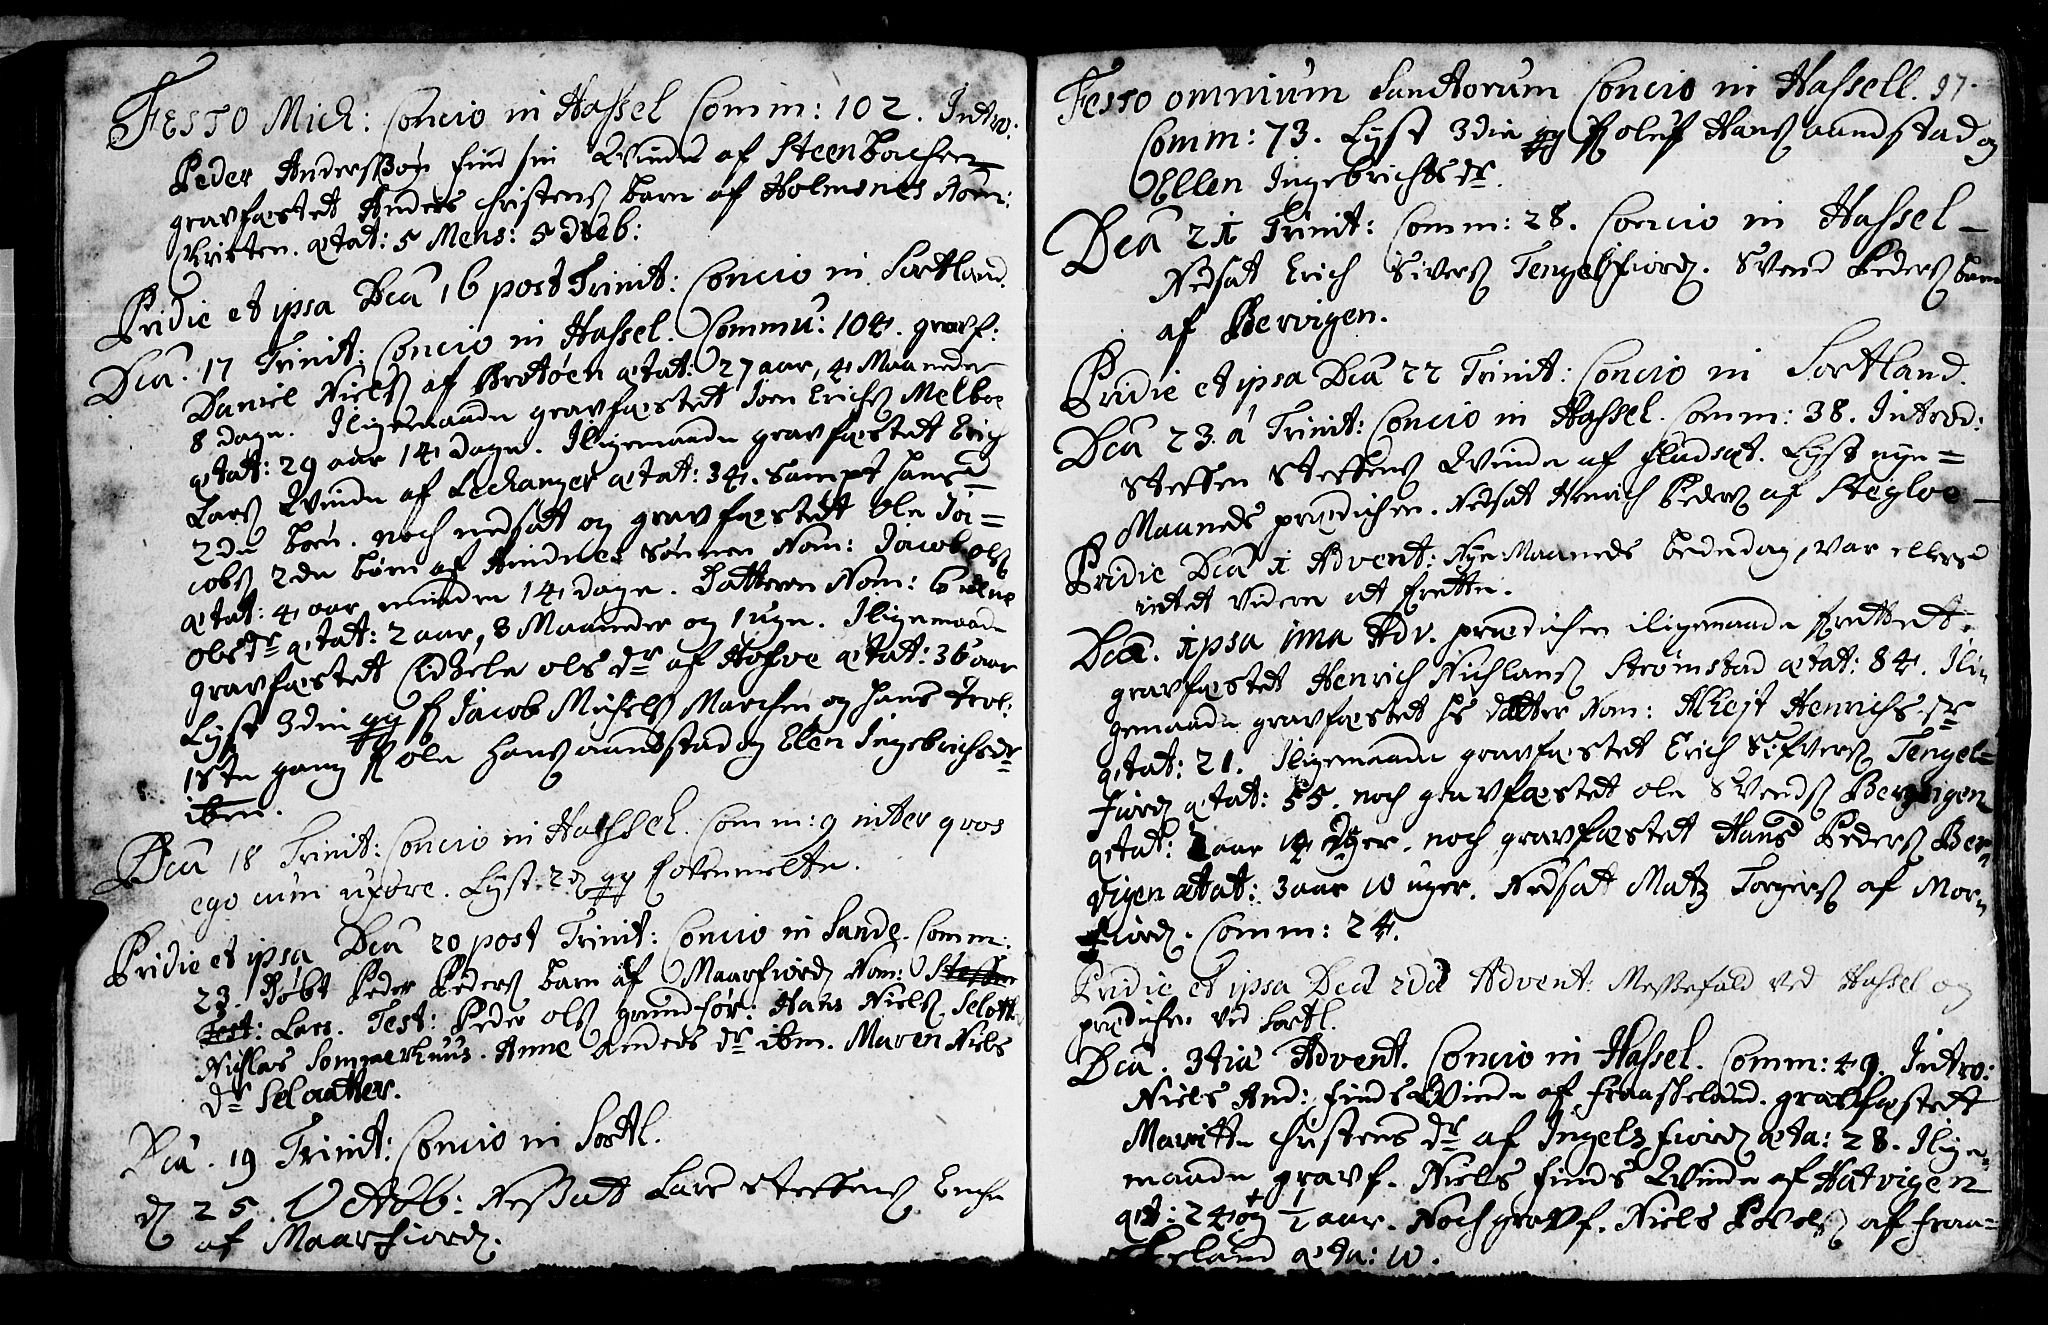 FESTO Mich: Concio in Hassel Comm: 102. Intro:
Peder Anderssøn find sin Qvinde af Steenbachen
gravfæstet Anders Christens barn af Holmsnes Nom:
Kristen. ætat: 5 Mens: 5 dieb:
Pridie et ipsa Dca 16 post Trinit: Concio in Sortland.
Dca. 17 Trinit: Concio in Hassel. Commu: 104. gravf:
Daniel Niels af Brotøen ætat: 27 aar, 4 Maaneder
8 dage. Iligemaade gravfæstet Joen Erichs Melboe
ætat: 29 aar 14 dage. Iligemaade gravfæstet Erich
Lars Qvinde af Lechanger ætat: 34. Sampt hans
2de børn. noch nedsatt og gravfæstet Ole Ja=
cobs 2de børn af Rindnes Sønnen Nom: Jacob ols
ætat: 4 aar minder 14 dage. Datteren Nom:
Olsdr ætat: 2 aar, 8 Maaneder og 1 uge. Iligemaade
gravfæstet Lidzele ols dr af Hofve ætat: 36 aar
Lyst 3die gg f Jacob Michels Marchen og Hans
1ste gang f ole Hans aandstad og Elen Ingebrichsdr
ibm.
Dca 18 Trinit: Concio in Hassel. Comm: 9 inter qvos
ego cum uxore. Lyst 2d gg
Pridie et ipsa Dca 20 post Trinit: Concio in Sande. Comm:
23. Døbt Peder Peders barn af Maarfiord Nom: Steffen
Test: Lars. Test: Peder ols grundfør: Hans Niels Selott
Nichlas Sommerhuus. Anne Anders dr ibm. Maren Niels
dr Selaatter.
Dca. 19 Trinit: Concio in Sortl.
d 25. Octob: Nedsatt Lars Steffens Enche
af Maarfiord.
Festo omnium Sanctorum Concio in Hassell. 97.
Comm: 73. Lyst 3die gg f oluf Hans aandstad og
Ellen Ingebrichts dr.
Dca 21 Trinit: Comm: 28. Concio in Hassel
Nedsat Erich Sivers Tengelfiord. Svend Peders barn
af Bervigen.
Pridie et ipsa Dca 22 Trinit: Concio in Sortland.
Dca 23 a Trinit: Concio in Hassel. Comm: 38. Introd:
Steffen Steffens Qvinde af fladsæt. Lyst nye=
Maaneds prædichen. Nedsat Henrich Peders af Stegloe
Pridie Dca 1 Advent: Nye Maaneds bededag, var ellers
intet videre at forette.
Dca. ipsa 1ma Adv. prædichen iligemaade forettet.
gravfæstet Henrich Nichlans Strømstad ætat: 84. Ili
gemaade gravfæstet hs datter Nom: AlleJt Henrichs dr
ætat: 21. Iligemaade gravfæstet Erich Sifvers Tengel=
fiord ætat: 55. noch gravfæstet ole Svends Bervigen
ætat: 2 aar 14 uger. noch gravfæstet Hans Peders Ber
vigen ætat: 3 aar 10 uger. Nedsat Matz Torgiers af Mor
fiord. Comm: 24.
Pridie et ipsa Dca 2da Advent: Messefald ved Hassel og
prædichen ved Sortl.
Dca. 3tia Advent. Concio in Hassel. Comm: 49. Intro:
Niels And: finds Qvinde af fraaskeland. gravfæstet
Maritte Christens dr af Ingelsfiord æta: 28. Ilige
maade gravf. Niels finds Qvinde af Hatvigen
æt: 24 og ½ aar. Noch gravf. Niels Povels af fraa=
skeland æta: 10.